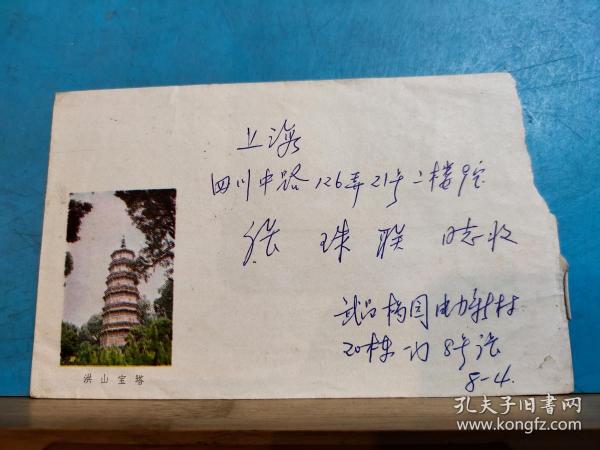 上海
四川中路126弄21号二楼9室
张珠联 同志收
武昌杨园电力新村
20栋一门8号 张
8-4.
洪山宝塔
孔夫子旧书网
www.kongfz.com